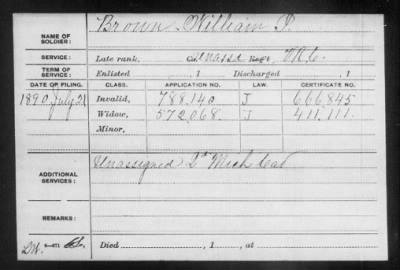 NAME OF SOLDIER: Brown William
SERVICE: Late rank, Co. Unassd Reg't V.R.C.
TERM OF SERVICE: Enlisted , 1 Discharged , 1
DATE OF FILING. CLASS. APPLICATION NO. LAW. CERTIFICATE NO.
1890 July 21 Invalid, 788.140 J 666.845
Widow, 572.068. J 411.111.
Minor,
ADDITIONAL SERVICES: Unassigned 2" Mich Cav
REMARKS:
Died , 1 , at